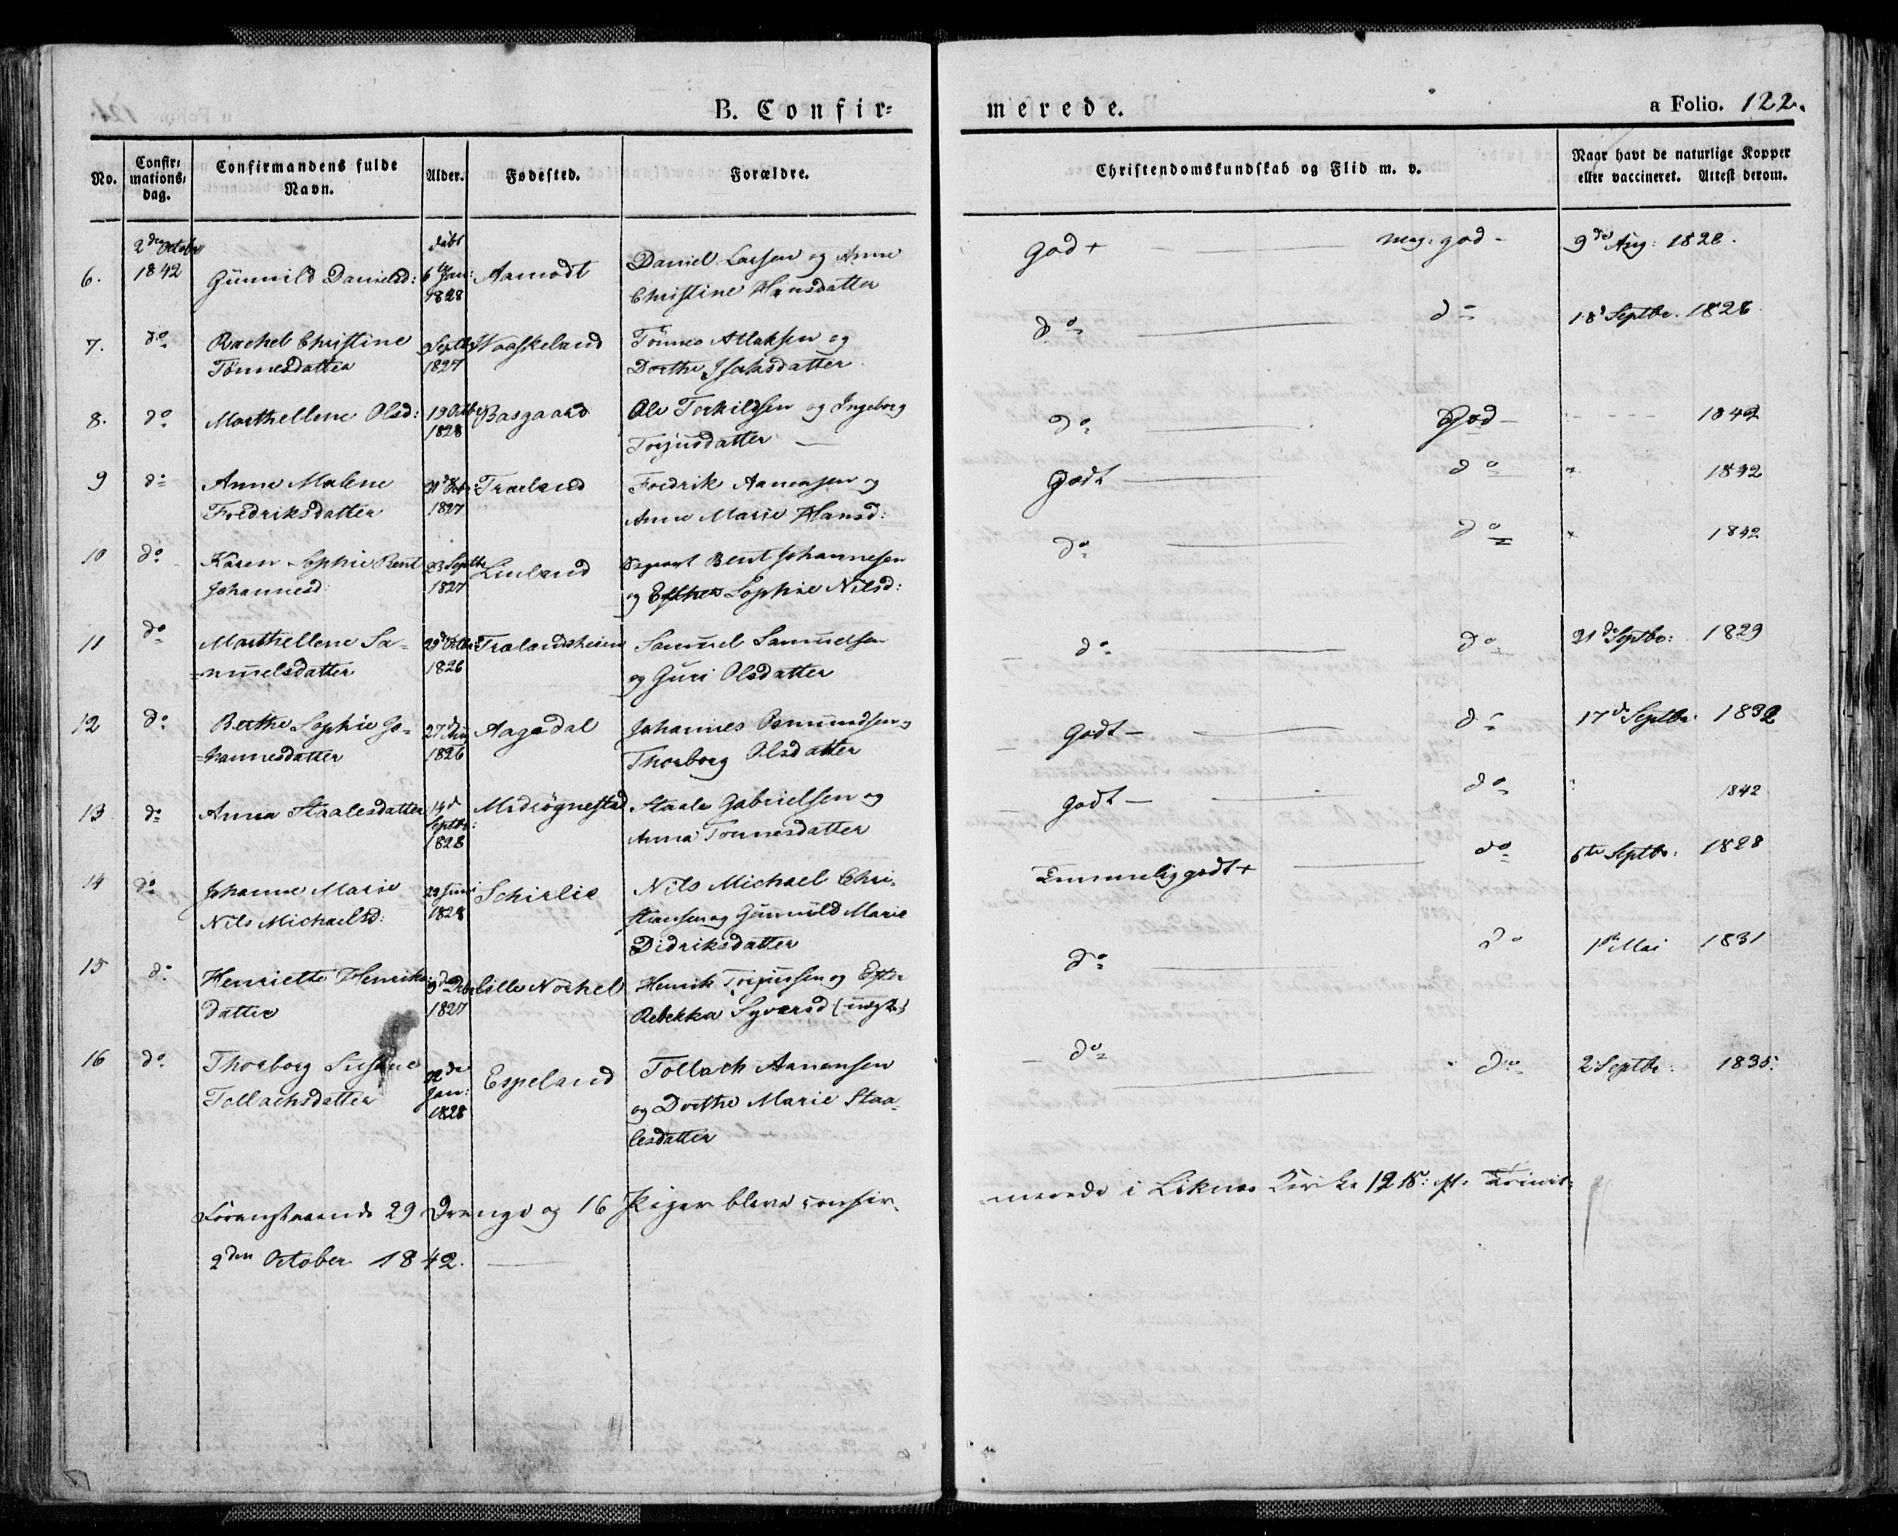 B. Confir=
merede.
a Folio. 122.
No.
Confir:
mations:
dag.
Confirmandens fulde
Navn.
Alder.
Fødested.
Forældre.
Christendomskundskab og Flid m. v.
Naar havt de naturlige Kopper
eller vaccineret. Attest derom.
6.
2den October
1842
Gunnild Danielsd:
døbt
6te Jan:
1828
Aamodt
Daniel Larsen og Anne
Christine Hansdatter
God +
meg. god -
9de Aug: 1828.
7.
do
Rachel Christine
Tønnesdatter
Septbr
1827
Waaskeland
Tønnes Atlaksen og
Dorthe Isaksdatter
do
do
18d Septbr. 1828
8.
do
Marthellene Olsd:
19 Octbr
1828
Basgaard
Ole Torkildsen og Ingeborg
Torjusdatter
do
God -
1842
9
do
Anne Malene
Fredriksdatter
1827
Træland
Fredrik Aanensen og
Anne Marie Hansd:
Godt
do
1842
10
do
Karen Sophie Bent
Johannesd:
23 Septbr
1827
Linland
Bent Johannesen
og Esther Sophie Nilsd:
do
do
1842
11
do
Marthellene Sa-
muelsdatter
29d Octbr
1826
Trælandsheien
Samuel Samuelsen
og Guri Olsdatter
do
do
21de Septbr: 1829
12
do
Berthe Sophie Jo-
hannesdatter
27d
1826
Aagedal
Johannes Osmundsen og
Thorborg Olsdatter
Godt -
do
17d Septbr. 1832
13
do
Anna Staalesdatter
14d
Septbr:
1828
Midtøgnestad
Staale Gabrielsen og
Anna Tønnesdatter
Godt -
do
1842
14
do
Johanne Marie
Nils Michaelsd:
29 Juni
1828
Schirlie
Nils Michael Chri-
stiansen og Gunnild Marie
Didriksdatter
Temmelig godt +
do
6te Septbr. 1828
15
do
Henriette Henriks
datter
9d Dcbr
1827
Lille Norkel
Henrik Torjussen og Ester
Rebekka Syversd (uægte)
do
do
1ste Mai 1831
16
do
Thorborg Susane
Tollachsdatter
22de
Jan:
1828
Espeland
Tollach Aanensen
og Dorthe Marie Staa-
lesdatter
do
do
2 Septbr: 1835.
Foranstaaende 29 Drenge og 16 Piger bleve confir-
merede i Liknes Kirke 19 S: p. Trinit:
2den October 1842.